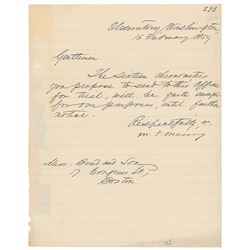 283
Observatory Washington,
15 February 1859
Gentlemen:
The Sixteen chronometers
you propose to send to this office
for trial, will be quite enough
for our purposes, until further
notice.
Respectfully &c
M. F. Maury
Mess. Bond and Son
17 Congress St,
Boston